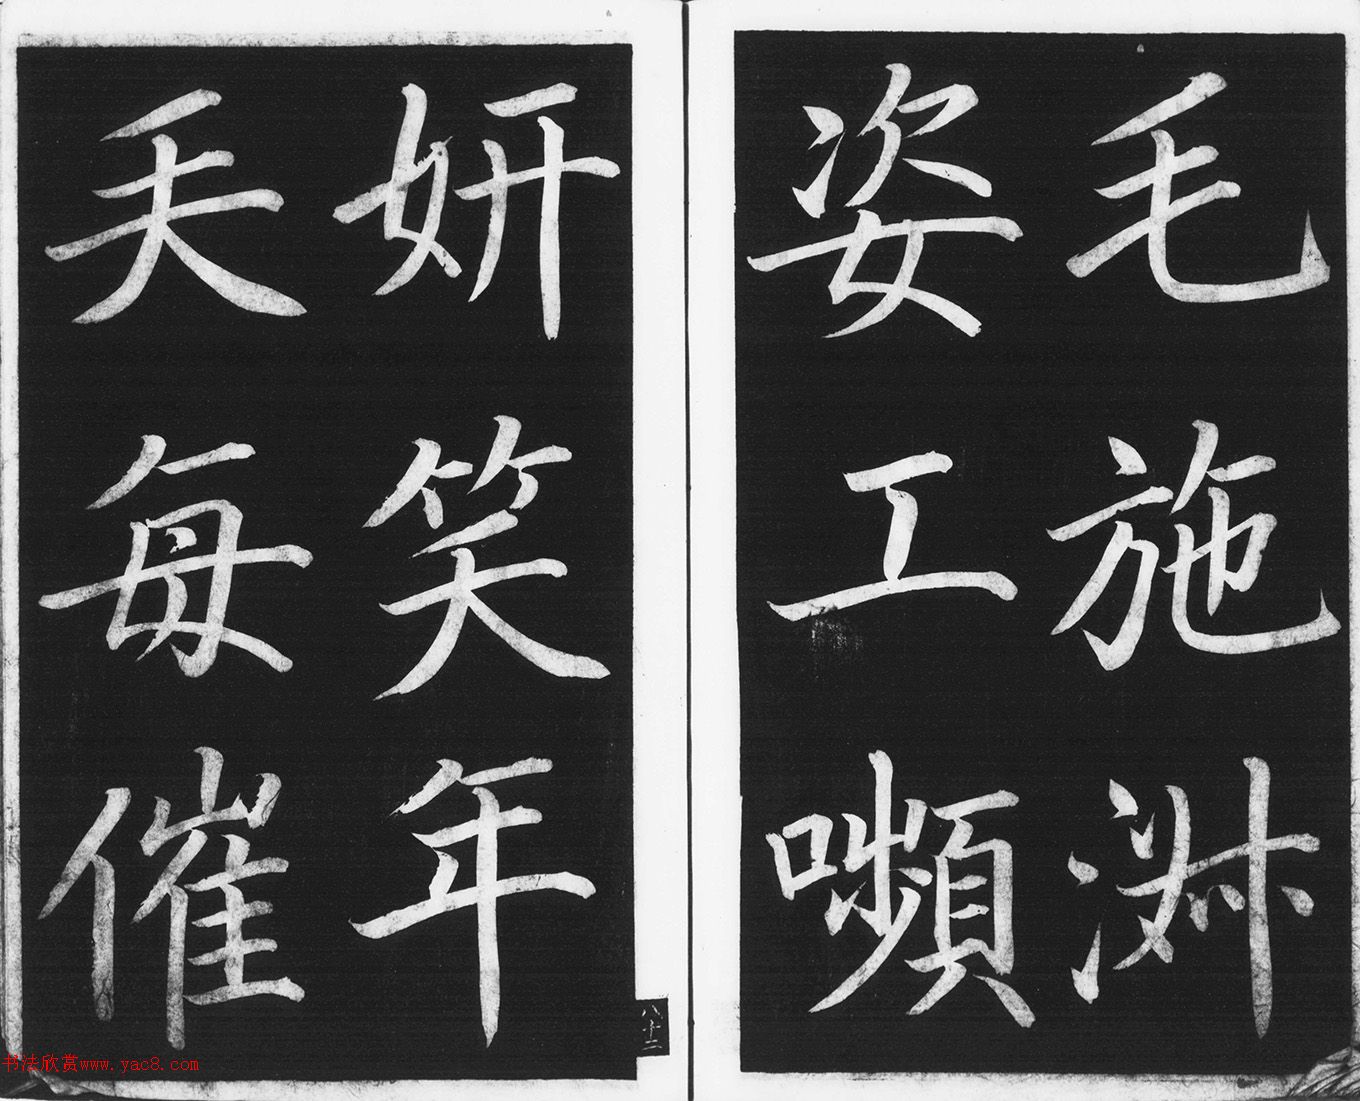 毛施淑
姿工嚬
妍笑年
夭每催
八十二
书法欣赏www.yac8.com